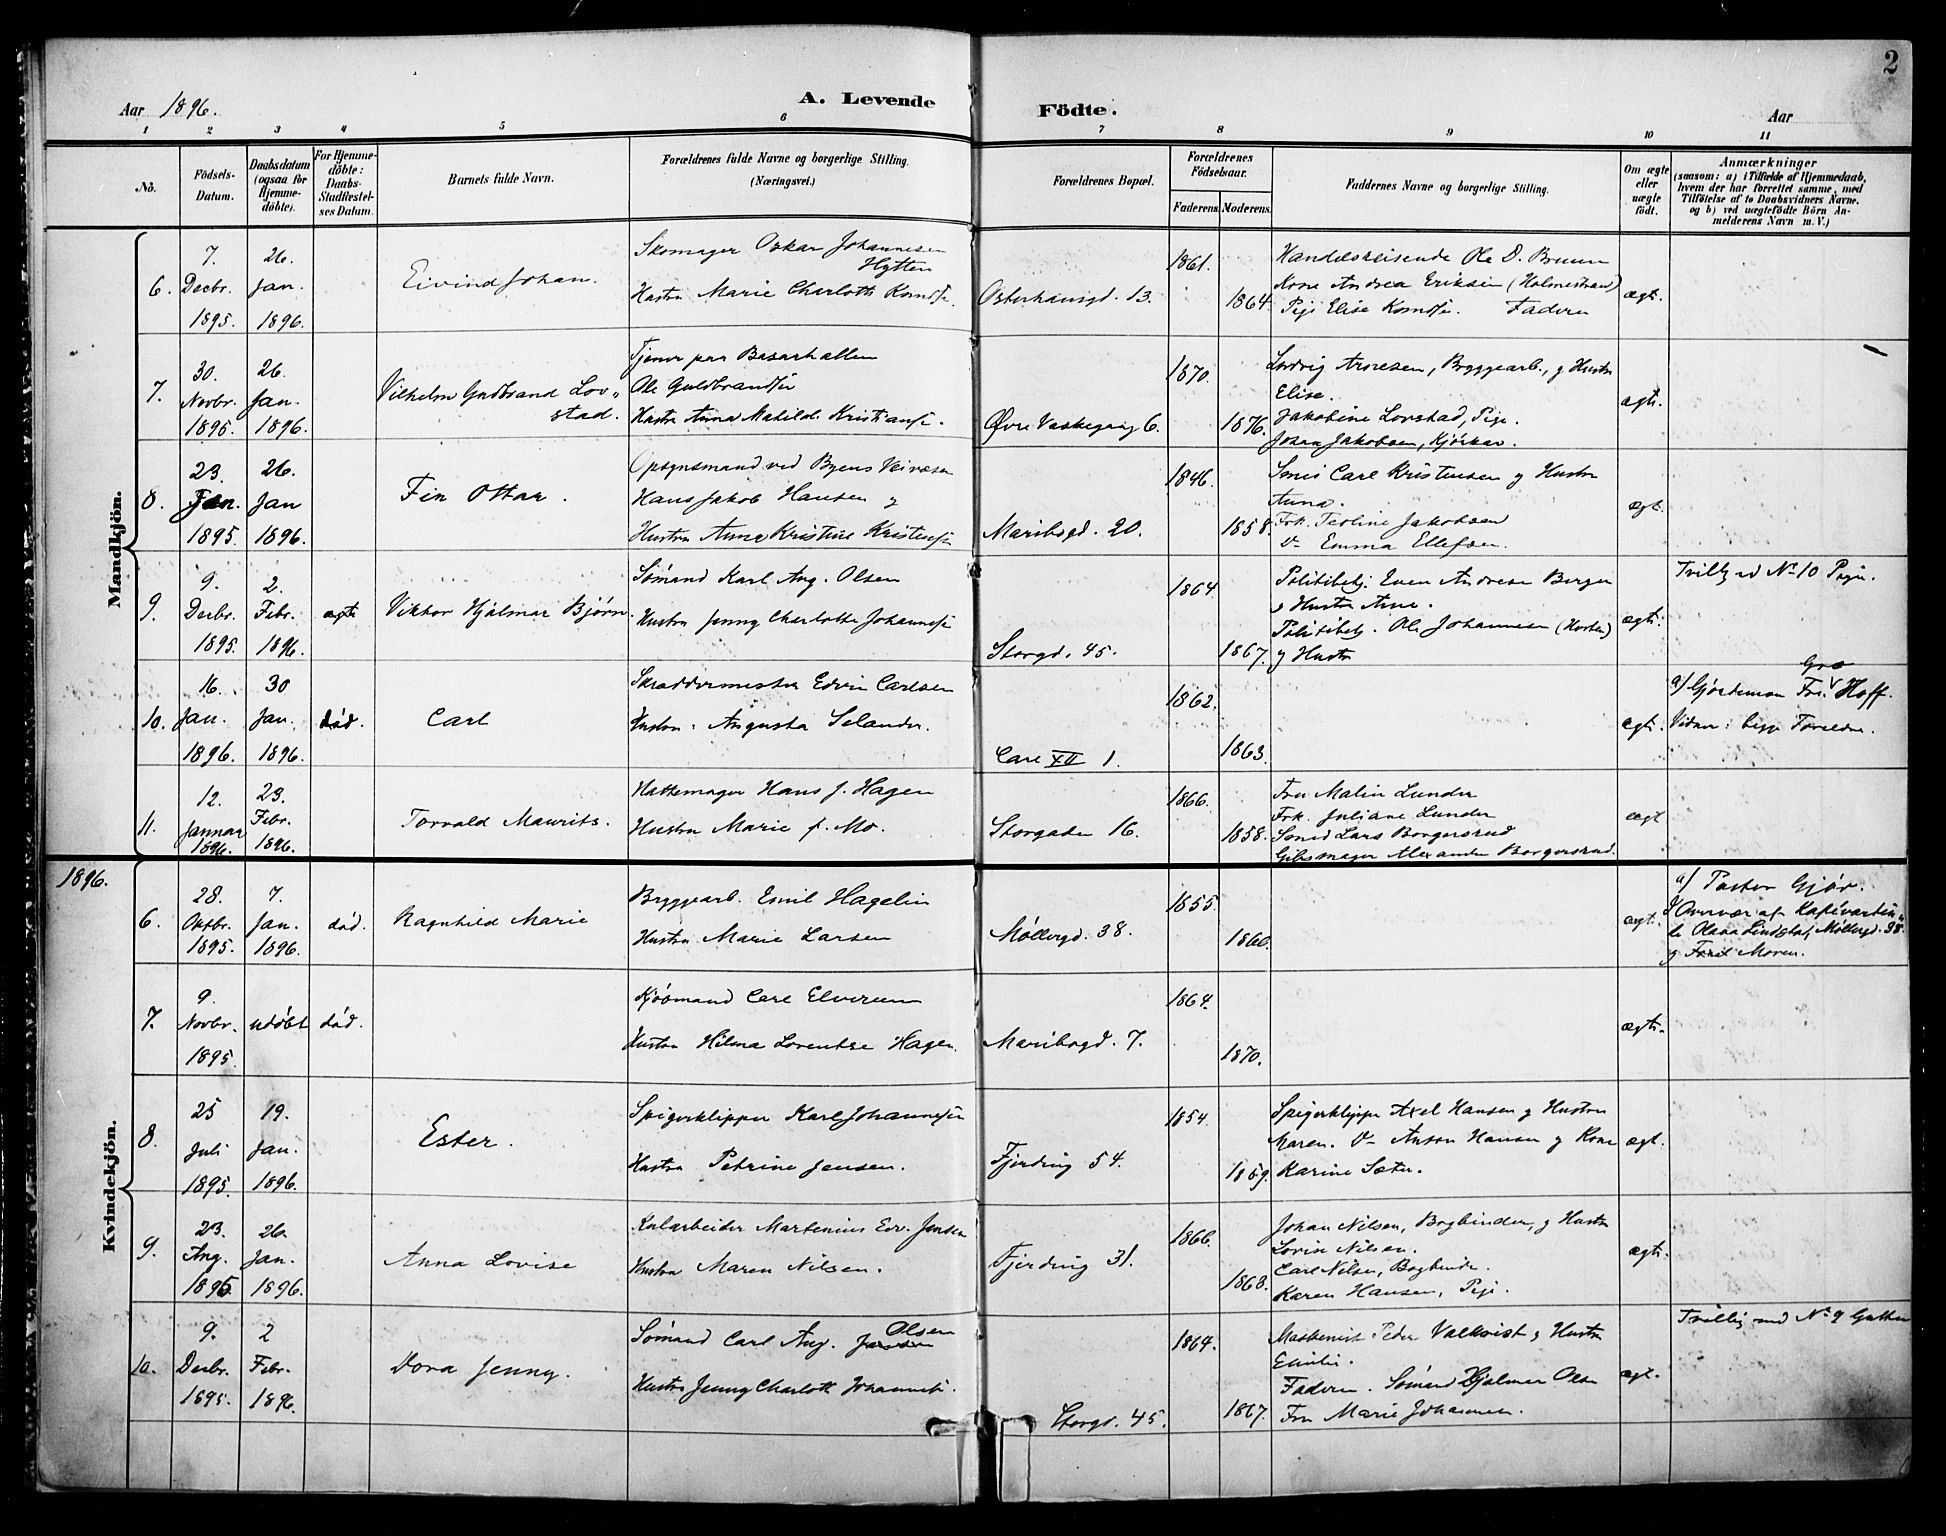 2
Aar 1896.
A. Levende
Födte.
Aar
1 2 3 4 5 6 7 8 9 10 11
No.
Födsels-
Datum.
Daabsdatum
(ogsaa for
Hjemme-
döbte).
For Hjemme-
döbte:
Daabs-
Stadfæstel-
ses Datum.
Barnets fulde Navn.
Forældrenes fulde Navne og borgerlige Stilling.
(Næringsvei.)
Forældrenes Bopæl.
Forældrenes
Födselsaar.
Faderens. Moderens.
Faddernes Navne og borgerlige Stilling.
Om ægte
eller
uægte
födt.
Anmærkninger
(saasom: a) i Tilfælde af Hjemmedaab,
hvem der har forrettet samme, med
Tilföielse af to Daabsvidners Navne,
og b) ved uægtefödte Börn An-
melderens Navn m. V.)
Mandkjön.
6.
7.
Decbr.
1895.
26.
Jan.
1896.
Eivind Johan.
Skomager Oskar Johannesen
Hytten
Hustru Marie Charlotte
Osterhausgd. 13.
1861.
1864.
Handelsreisende Ole D. Bruun
Kone Andrea Eriksen (Holmestrand)
Pige Elise Faderen
ægt.
7.
30.
Novbr.
1895.
26.
Jan.
1896.
Vilhelm Gudbrand Lov-
stad.
Tjener paa Basarhallen
Ole Guldbrands
Hustru Anna Matild. Kristians
Øvre Vaskegang 6.
1870.
1876.
Ludvig Arnesen, Bryggearb., og Hustru
Elise.
Jakobine Lovstad, Pige.
Johan Jakobsen, Kjørkar.
ægt.
8.
23.
Jan.
1895.
26.
Jan
1896.
Fin Ottar.
Opsynsmand ved Byens Veivæsen
Hans Jakob Hansen og
Hustru Anna Kristine Kristens
Maribogd. 20.
1846.
1858.
Smed Carl Kristensen og Hustru
Anna.
Frk. Teoline Jakobsen
Emma Ellefsen.
ægt.
9.
9.
Decbr.
1895.
2.
Febr.
1896.
ægte
Viktor Hjalmar Bjørn.
Sømand Karl Aug. Olsen
Hustru Jenny Charlotte Johannes
Storgd. 45.
1864.
1867.
Politibetj. Even Andreas Berger
og Hustru Anne.
Politibetj. Ole Johannesen (Horten)
og Hustru
ægt.
Tvilling med No 10 Pigen.
10.
16.
Jan.
1896.
30
Jan.
1896.
død.
Carl
Skræddermester Edvin Carlsen
Hustru: Augusta Selander.
Carl XII 1.
1862.
1863.
ægt.
a) Gjordemor Fru Hoff.
Vidner: begge Forældre.
11.
12.
Januar
1896.
23.
Febr.
1896.
Torvald Maurits.
Hattemager Hans J. Hagen
Hustru Marie f. Mo.
Storgaden 16.
1866.
1858.
Fru Malin Lunder
Frk. Juliane Lunder
Smed Lars Borgersrud
Gibsmager Alexander Borgersrud.
ægt
1896.
Kvindekjön.
6.
28.
Oktbr.
1895.
7.
Jan.
1896.
død.
Ragnhild Marie
Bryggearb. Emil Hagelin
Hustru Marie Larsen
Møllergd. 38.
1855.
1860.
ægt.
a) Pastor Gjør.
Overvær af Kafévertin-
de Olava Lindstad, Møllergd. 38
og Moren.
7.
9.
Novbr.
1895.
udøbt
død.
Kjøsmand Carl Elverum
Hustru Hilma Lorentse Hagen.
Maribogd. 7.
1864.
1870.
ægt.
8.
25
Juli
1895.
19.
Jan.
1896.
Ester.
Spigerklipper Karl Johannes
Hustru Petrine Jensen.
Fjerding 54.
1854.
1859.
Spigerklipper Axel Hansen og Hustru
Maren. Anton Hansen og Kone
Karine Sæter.
ægt.
9.
23.
Aug.
1895.
26.
Jan.
1896.
Anna Lovise
Kularbeider Martenius Edv. Jensen
Hustru Maren Nilsen.
Fjerding 31.
1866.
1868.
Johan Nilsen, Bogbinder, og Hustru
Lovin Nilsen.
Carl Nilsen, Bogbinder.
Karen Hansen, Pige.
ægt.
10.
9.
Decbr.
1895.
2
Febr.
1896.
Dora Jenny.
Olsen
Sømand Carl Aug. Jensen
Hustru Jenny Charlotte Johannes
Storgd. 45.
1864.
1867.
Maskinist Peder Valkvist og Hustru
Emilie.
Faderen. Sømand Hjalmar Olsen
Fru Marie Johannesen.
ægt.
Tvilling med No 9 Gutten